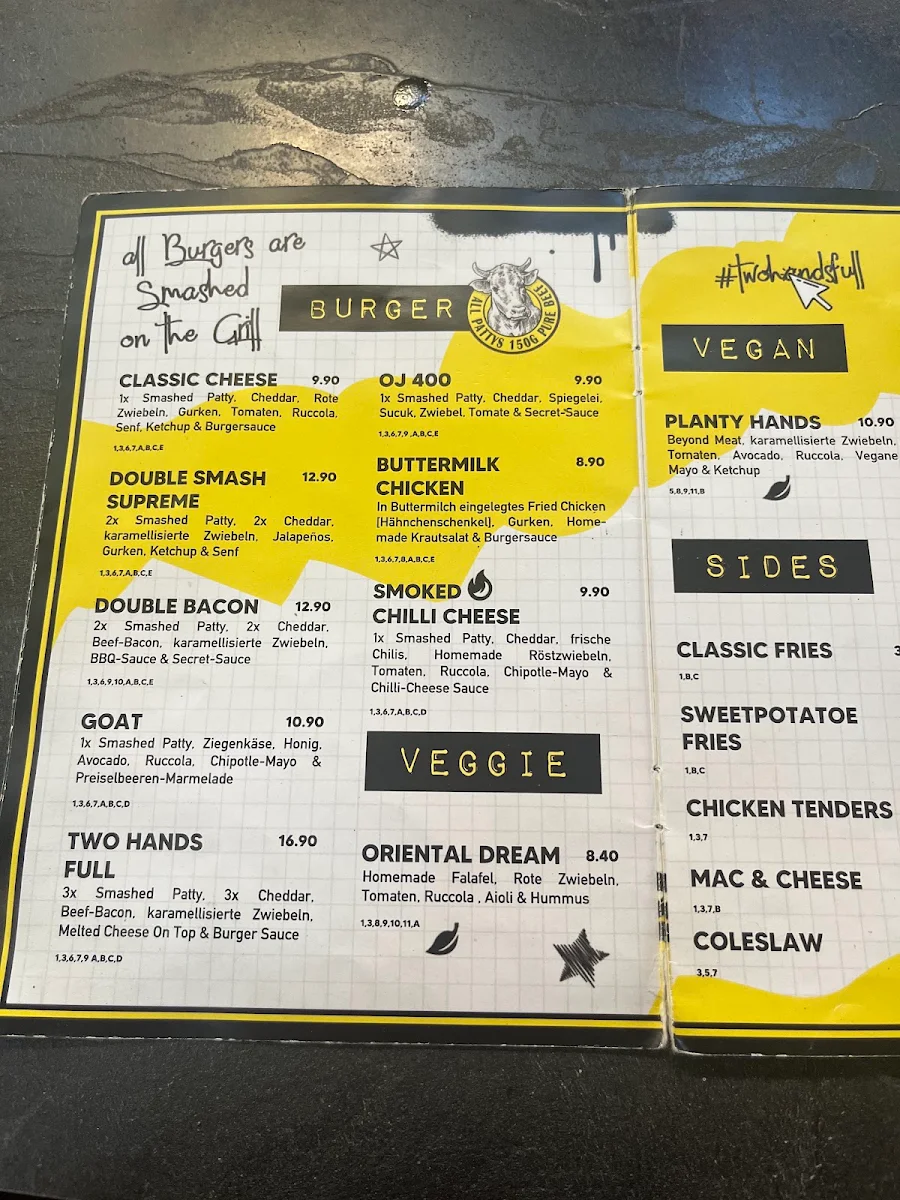 all Burgers are
Smashed
on the Grill
BURGER
ALL PATTYS 150G PURE BEEF
CLASSIC CHEESE 9.90
1x Smashed Patty, Cheddar, Rote
Zwiebeln, Gurken, Tomaten, Ruccola,
Senf, Ketchup & Burgersauce
1,3,6,7,A,B,C,E
DOUBLE SMASH 12.90
SUPREME
2x Smashed Patty, 2x Cheddar,
karamellisierte Zwiebeln, Jalapeños,
Gurken, Ketchup & Senf
1,3,6,7,A,B,C,E
DOUBLE BACON 12.90
2x Smashed Patty, 2x Cheddar,
Beef-Bacon, karamellisierte Zwiebeln,
BBQ-Sauce & Secret-Sauce
1,3,6,9,10,A,B,C,E
GOAT 10.90
1x Smashed Patty, Ziegenkäse, Honig,
Avocado, Ruccola, Chipotle-Mayo &
Preiselbeeren-Marmelade
1,3,6,7,A,B,C,D
TWO HANDS 16.90
FULL
3x Smashed Patty, 3x Cheddar,
Beef-Bacon, karamellisierte Zwiebeln,
Melted Cheese On Top & Burger Sauce
1,3,6,7,9 A,B,C,D
OJ 400 9.90
1x Smashed Patty, Cheddar, Spiegelei,
Sucuk, Zwiebel, Tomate & Secret-Sauce
1,3,6,7,9 ,A,B,C,E
BUTTERMILK 8.90
CHICKEN
In Buttermilch eingelegtes Fried Chicken
[Hähnchenschenkel], Gurken, Home-
made Krautsalat & Burgersauce
1,3,6,7,8,A,B,C,E
SMOKED 9.90
CHILLI CHEESE
1x Smashed Patty, Cheddar, frische
Chilis, Homemade Röstzwiebeln,
Tomaten, Ruccola, Chipotle-Mayo &
Chilli-Cheese Sauce
1,3,6,7,A,B,C,D
VEGGIE
ORIENTAL DREAM 8.40
Homemade Falafel, Rote Zwiebeln,
Tomaten, Ruccola , Aioli & Hummus
1,3,8,9,10,11,A
#twohandsfull
VEGAN
PLANTY HANDS 10.90
Beyond Meat, karamellisierte Zwiebeln,
Tomaten, Avocado, Ruccola, Vegane
Mayo & Ketchup
5,8,9,11,B
SIDES
CLASSIC FRIES 3
1,B,C
SWEETPOTATOE
FRIES
1,B,C
CHICKEN TENDERS
1,3,7
MAC & CHEESE
1,3,7,B
COLESLAW
3,5,7